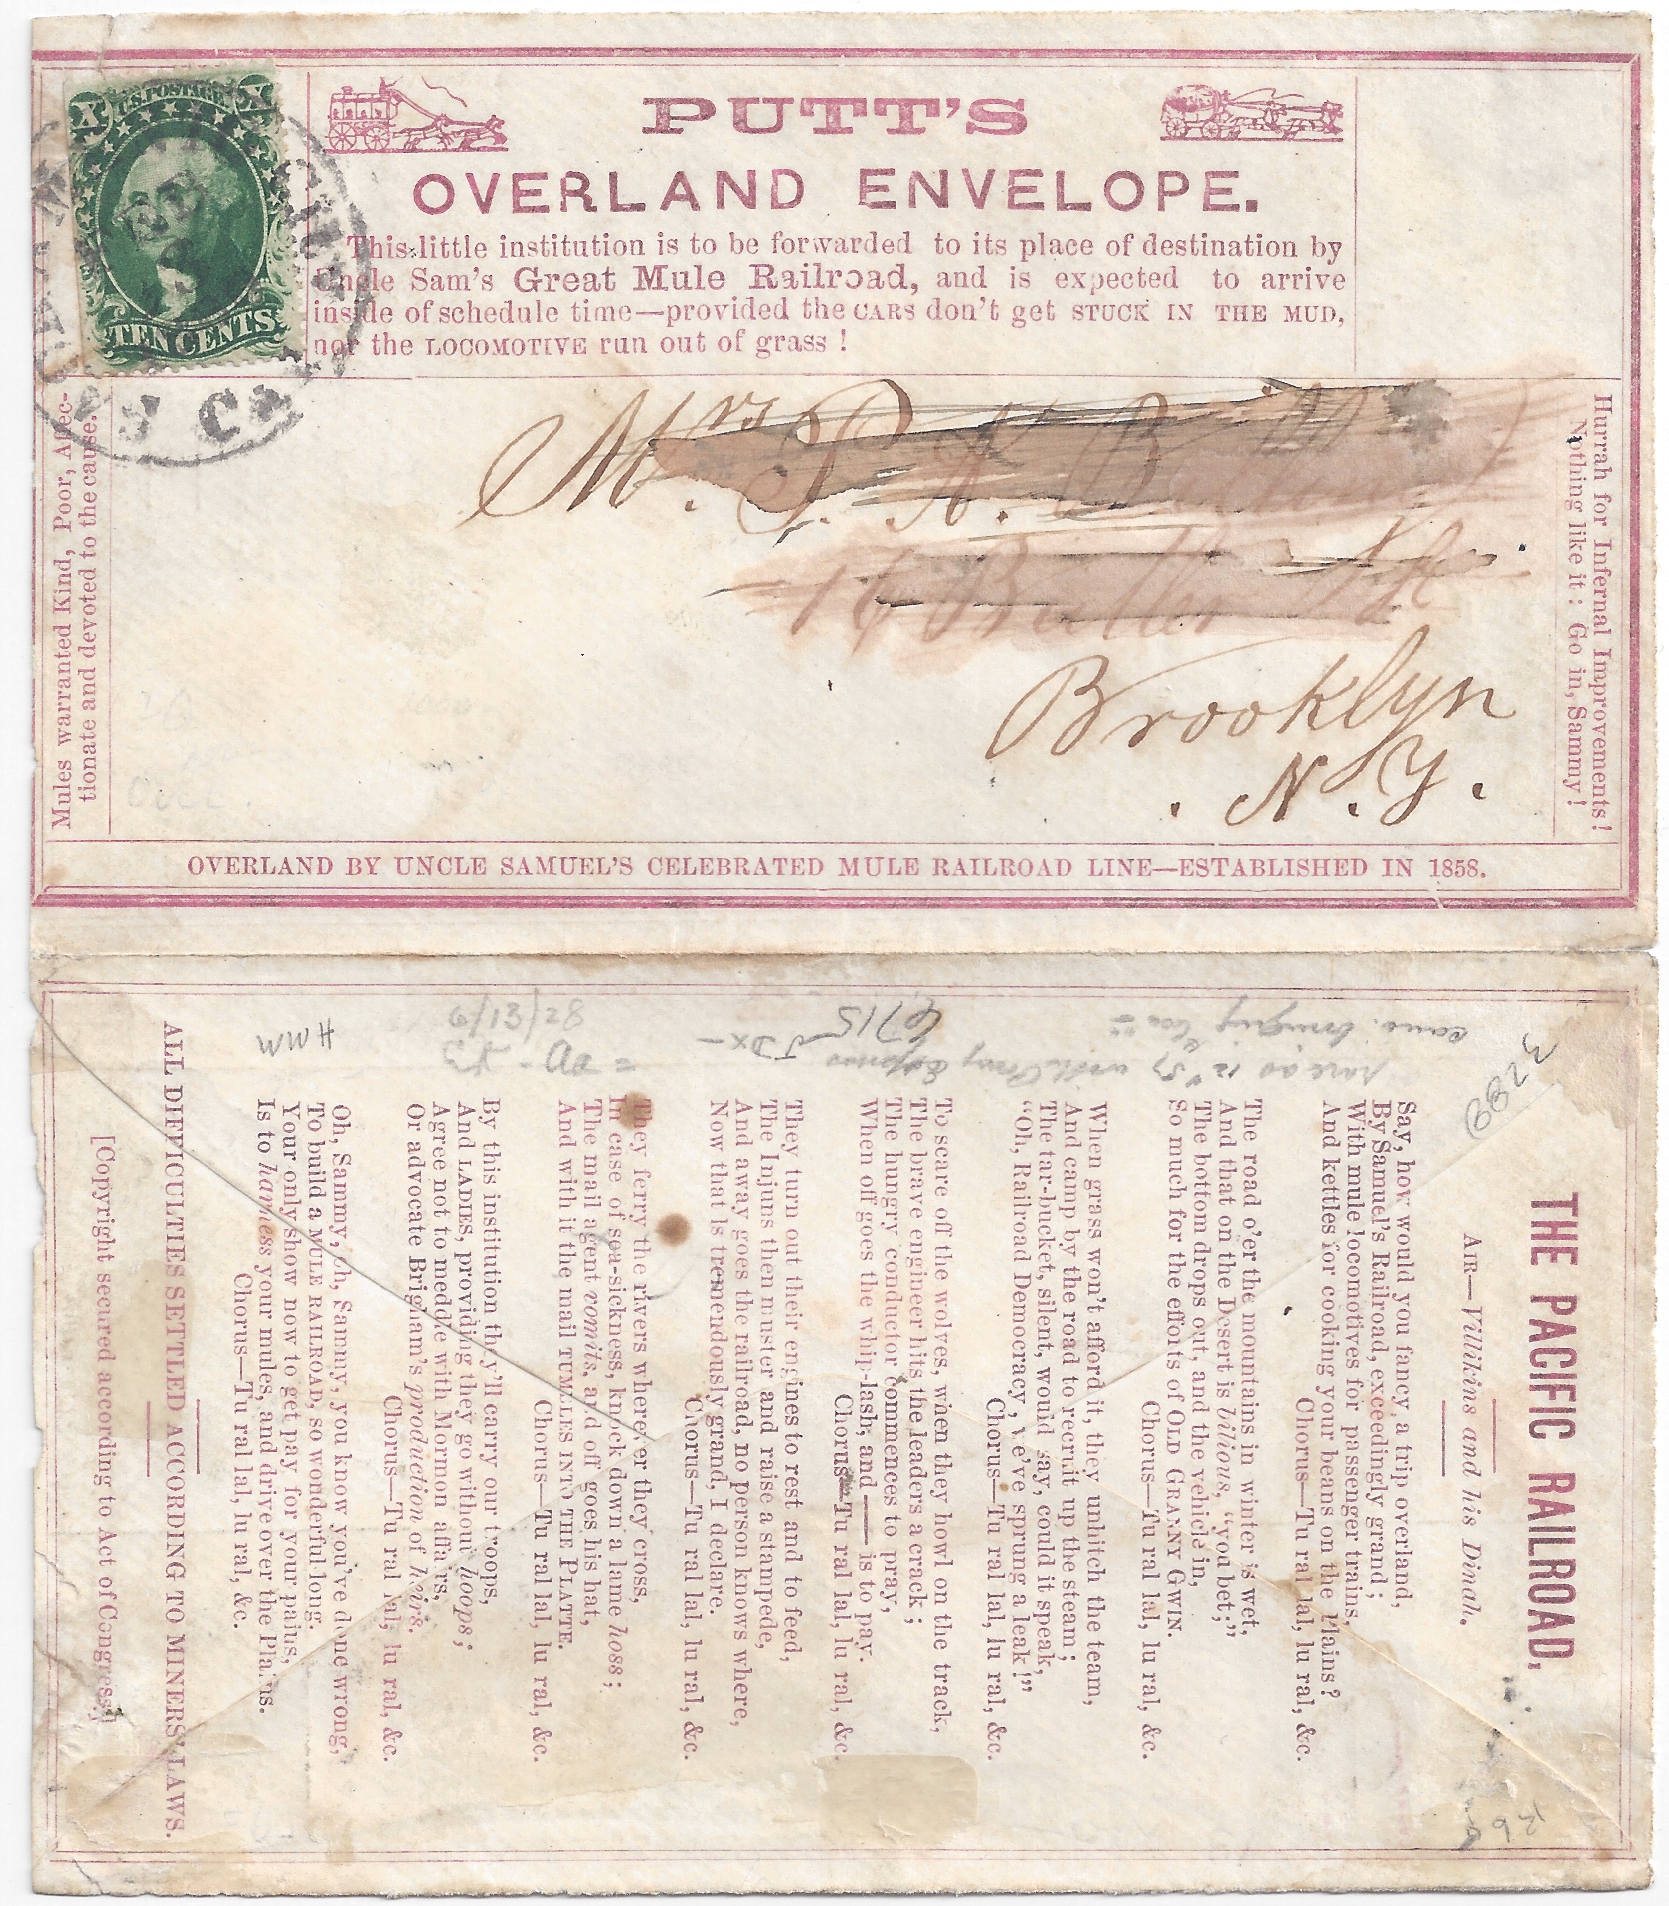 X U.S. POSTAGE. X
TEN CENTS
PUTT'S
OVERLAND ENVELOPE.
This little institution is to be forwarded to its place of destination by
Uncle Sam's Great Mule Railroad, and is expected to arrive
inside of schedule time—provided the CARS don't get STUCK IN THE MUD,
nor the LOCOMOTIVE run out of grass !
Mules warranted Kind, Poor, Affec-
tionate and devoted to the cause.
Mrs. P. A.
16 Butler St
Brooklyn
N.Y.
Hurrah for Infernal Improvements!
Nothing like it : Go in, Sammy!
OVERLAND BY UNCLE SAMUEL'S CELEBRATED MULE RAILROAD LINE—ESTABLISHED IN 1858.
THE PACIFIC RAILROAD.
AIR—Villikins and his Dinah.
Say, how would you fancy a trip overland,
By Samuel's Railroad, exceedingly grand;
With mule locomotives for passenger trains,
And kettles for cooking your beans on the Plains?
Chorus—Tu ral lal, lu ral, &c.
The road o'er the mountains in winter is wet,
And that on the Desert is bilious, "you bet;"
The bottom drops out, and the vehicle in,
So much for the efforts of OLD GRANNY GWIN.
Chorus—Tu ral lal, lu ral, &c.
When grass won't afford it, they unhitch the team,
And camp by the road to recruit up the steam;
The tar-bucket, silent, would say, could it speak,
"Oh, Railroad Democracy, we've sprung a leak!"
Chorus—Tu ral lal, lu ral, &c.
To scare off the wolves, when they howl on the track,
The brave engineer hits the leaders a crack;
The hungry conductor commences to pray,
When off goes the whip-lash, and —— is to pay.
Chorus—Tu ral lal, lu ral, &c.
They turn out their engines to rest and to feed,
The Injuns then muster and raise a stampede,
And away goes the railroad, no person knows where,
Now that is tremendously grand, I declare.
Chorus—Tu ral lal, lu ral, &c.
They ferry the rivers wherever they cross,
In case of sea-sickness, knock down a lame hoss;
The mail agent vomits, and off goes his hat,
And with it the mail TUMBLES INTO THE PLATTE.
Chorus—Tu ral lal, lu ral, &c.
By this institution they'll carry our troops,
And LADIES, providing they go without hoops;
Agree not to meddle with Mormon affairs,
Or advocate Brigham's production of heirs.
Chorus—Tu ral lal, lu ral, &c.
Oh, Sammy, oh, Sammy, you know you've done wrong,
To build a MULE RAILROAD, so wonderful long.
Your only show now to get pay for your pains,
Is to harness your mules, and drive over the Plains.
Chorus—Tu ral lal, lu ral, &c.
ALL DIFFICULTIES SETTLED ACCORDING TO MINERS' LAWS.
[Copyright secured according to Act of Congress.]
WWH
6/13/28
6715